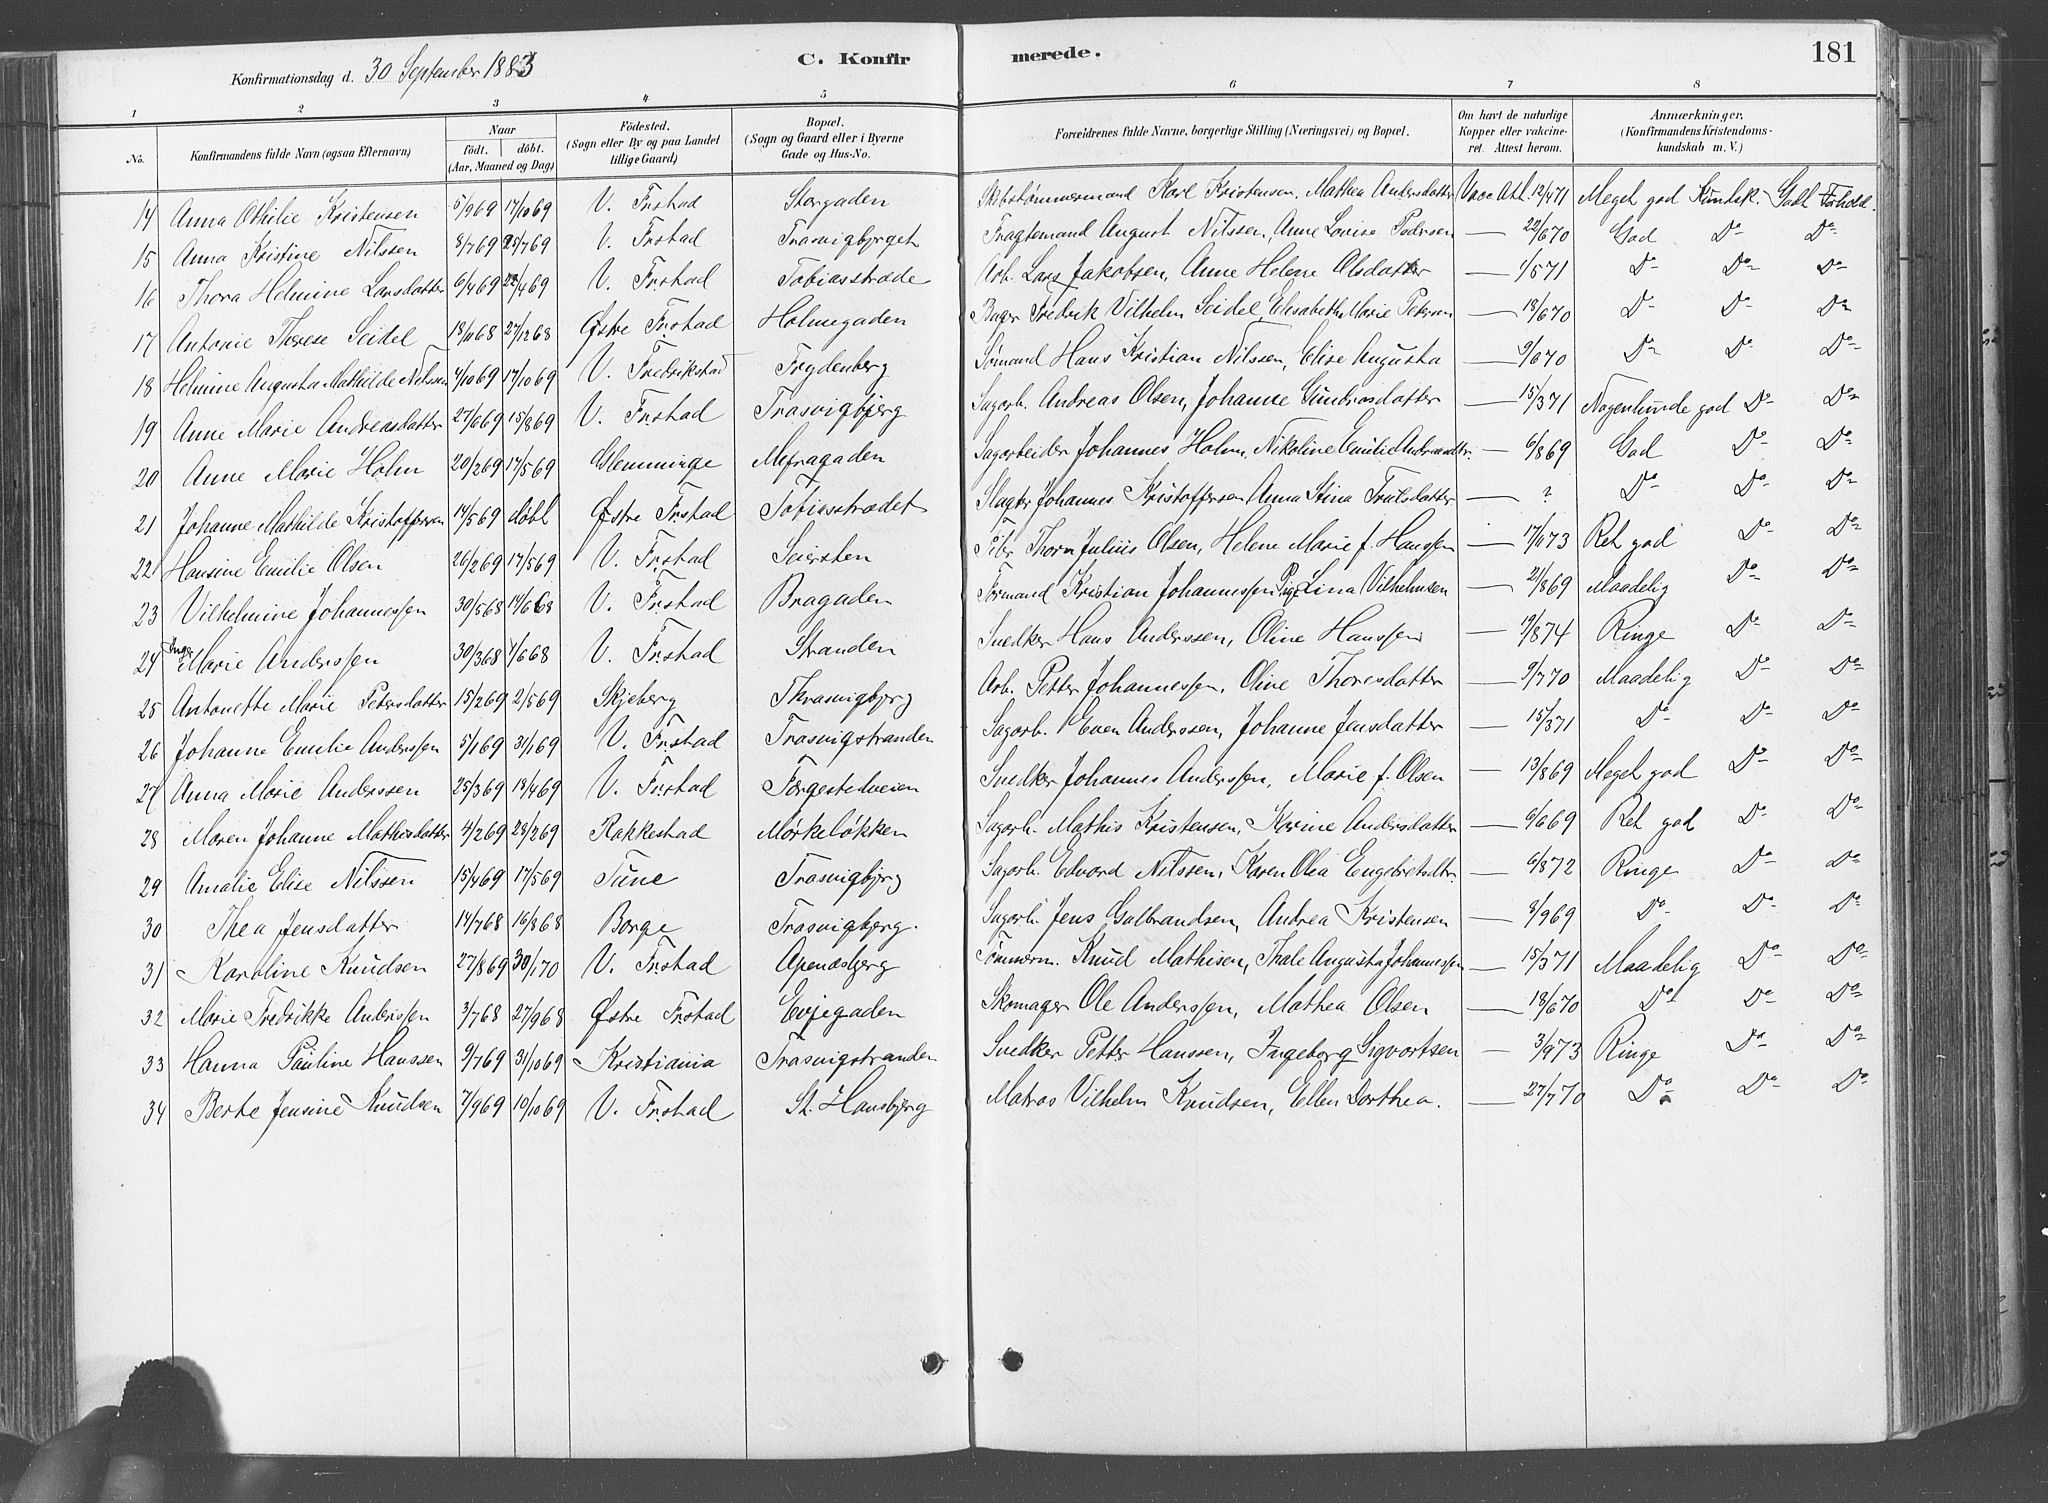 Konfirmationsdag d. 30 September 1883 C. Konfirmerede. 181
1 2 3 4 5 6 7 8
No. Konfirmandens fulde Navn (ogsaa Efternavn) Naar født. døbt. (Aar, Maaned og Dag) Fødested. (Sogn eller By og paa Landet tillige Gaard) Bopæl. (Sogn og Gaard eller i Byerne Gade og Hus-No. Forældrenes fulde Navne, borgerlige Stilling (Næringsvei) og Bopæl. Om havt de naturlige Kopper eller vakcineret. Attest herom. Anmærkninger, (Konfirmandens Kristendomskundskab m. V.)
14 Anna Othilie Kristensen 5/9 69 17/10 69 V. Frstad Storgaden Skibstømmermand Karl Kristensen, Mathea Andersdatter Vacc. Att. 12/4 71 Meget god Kundsk. Godt Forhold.
15 Anna Kristine Nilssen 8/7 69 25/7 69 V. Frstad Trasvigbjerget Fragtemand August Nilssen, Anne Lovise Pedersen — 22/6 70 God Do Do
16 Thora Helmine Larsdatter 6/4 69 22/4 69 V. Frstad Tobiasstræde Arb. Lars Jakobsen, Anne Helene Olsdatter — 1/5 71 Do Do Do
17 Antonie Therese Seidel 18/11 68 27/12 68 Østre Frstad Holmegaden Bager Fredrik Vilhelm Seidel, Elisabeth Marie Petersen — 18/6 70 Do Do Do
18 Helmine Augusta Mathilde Nilssen 4/10 69 17/10 69 V. Fredrikstad Frydenberg Sømand Hans Kristian Nilssen, Elise Augusta — 9/6 70 Do Do Do
19 Anne Marie Andreasdatter 27/6 69 15/8 69 V. Frstad Trasvigbjerg Sagarb. Andreas Olsen, Johanne Gundrosdatter — 15/3 71 Nogenlunde god Do Do
20 Anne Marie Holm 20/2 69 17/5 69 Glemminge Mefragaden Sagarbeider Johannes Holm, Nikoline Emilie Andreasdtr. — 6/8 69 God Do Do
21 Johanne Mathilde Kristoffersen 14/5 69 døbt Østre Frstad Tobiasstrædet Slagter Johannes Kristoffersen Anna Stina Trulsdatter — ? Do Do Do
22 Hansine Emilie Olsen 26/2 69 17/5 69 V. Frstad Seiersten Thorn Julius Olsen, Helene Marie f. Hanssen — 17/1 73 Ret god Do Do
23 Vilhelmine Johannessen 30/5 68 14/6 68 V. Frstad Bragaden Formand Kristian Johannessen Pige Lina Vilhelmsen — 21/8 69 Maadelig Do Do
24 Inga Marie Anderssen 30/3 68 1/6 68 V. Frstad Stranden Snedker Hans Anderssen, Oline Hanssen — 19/8 74 Ringe Do Do
25 Antonette Marie Petersdatter 15/2 69 2/5 69 Skjeberg Thrasvigbjerg Arb. Petter Johannessen, Oline Thoresdatter — 9/7 70 Maadelig Do Do
26 Johanne Emilie Anderssen 5/1 69 31/1 69 V. Frstad Trasvigstranden Sagarb. Even Anderssen, Johanne Jensdatter — 15/3 71 Do Do Do
27 Anna Marie Anderssen 25/3 69 18/4 69 V. Frstad Færgestedveien Snedker Johannes Anderssen, Marie f. Olsen — 13/8 69 Meget god Do Do
28 Maren Johanne Mathisdatter 4/2 69 28/2 69 Rakkestad Mørkeløkken Sagarb. Mathis Kristensen, Karine Andersdatter — 6/6 69 Ret god Do Do
29 Amalie Elise Nilssen 15/4 69 17/5 69 Tune Trasvigbjerg Sagarb. Edvard Nilssen, Karen Olea Engebretsdtr. — 6/8 72 Ringe Do Do
30 Thea Jensdatter 14/7 68 16/8 68 Borge Trasvigbjerg. Sagarb. Jens Gulbrandsen, Andrea Kristensen — 8/9 69 Do Do Do
31 Karoline Knudsen 27/8 69 30/1 70 V. Frstad Apenæsbjerg Tømmerm. Knud Mathisen, Thale Augusta Johannessen — 15/3 71 Maadelig Do Do
32 Marie Fredrikke Anderssen 3/7 68 27/9 68 Østre Frstad Evjegaden Skomager Ole Anderssen, Mathea Olsen — 18/6 70 Do Do Do
33 Hanna Pauline Hanssen 9/7 69 31/10 69 Kristiania Trasvigstranden Snedker Petter Hanssen, Ingeborg Sigvartsen — 3/9 73 Ringe Do Do
34 Berte Jensine Knudsen 7/9 69 10/10 69 V. Frstad St. Hansbjerg Matros Vilhelm Knudsen, Ellen Dorthea. — 27/7 70 Do Do Do